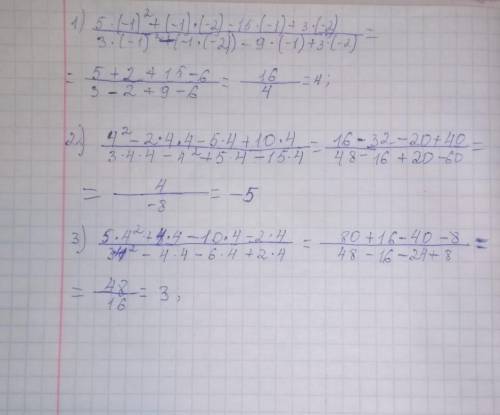 1) (5·(-1)²+(-1)·(-2)-15·(-1)+3·(-2))/(3·(-1)²-(-1·(-2))-9·(-1)+3·(-2)) =
= (5+2+15-6)/(3-2+9-6) = 16/4 = 4;
2) (4²-2·4·4-5·4+10·4)/(3·4·4-4²+5·4-15·4) = (16-32-20+40)/(48-16+20-60) =
= 4/-8 = -5
3) (5·4²+4·4-10·4-2·4)/(3·4²-4·4-6·4+2·4) = (80+16-40-8)/(48-16-24+8) =
= 48/16 = 3;